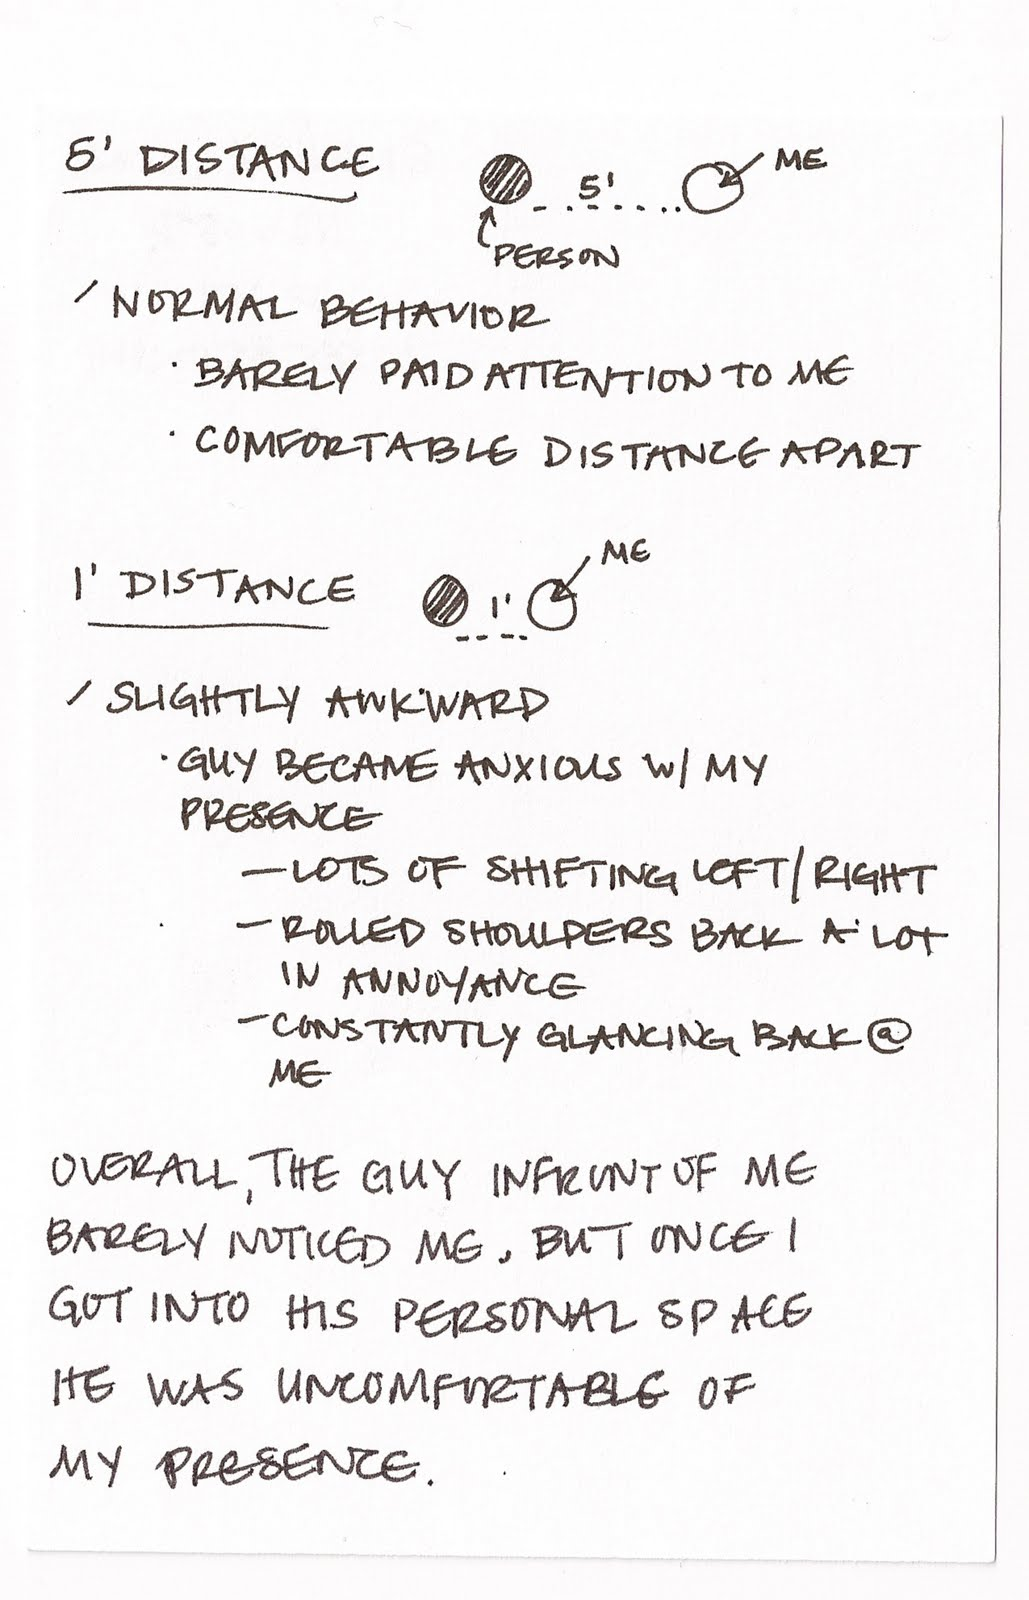 5' DISTANCE
ME
5'
PERSON
/ NORMAL BEHAVIOR
· BARELY PAID ATTENTION TO ME
· COMFORTABLE DISTANCE APART
1' DISTANCE
ME
1'
/ SLIGHTLY AWKWARD
· GUY BECAME ANXIOUS W/ MY
PRESENCE
— LOTS OF SHIFTING LEFT/RIGHT
— ROLLED SHOULDERS BACK A LOT
IN ANNOYANCE
— CONSTANTLY GLANCING BACK @
ME
OVERALL, THE GUY INFRONT OF ME
BARELY NOTICED ME. BUT ONCE I
GOT INTO HIS PERSONAL SPACE
HE WAS UNCOMFORTABLE OF
MY PRESENCE.